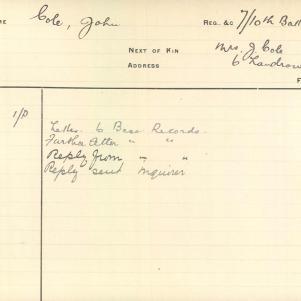 ME Cole, John REG. &C 7/10th Batt
NEXT OF KIN Mrs. J. Cole
ADDRESS 6
F
Letter to Base Records.
Further letter " "
Reply from " "
Reply sent Inquirer